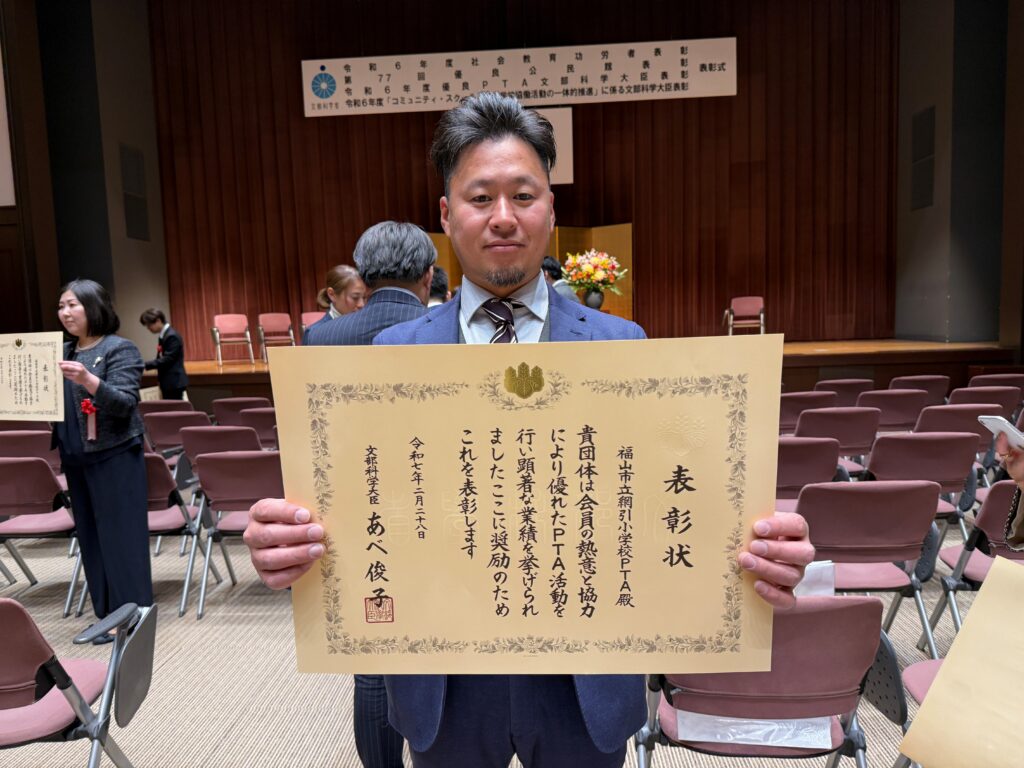 令和6年度社会教育功労者表彰
第77回優良公民館表彰
令和6年度優良PTA文部科学大臣表彰
令和6年度「コミュニティ・スクー
協働活動の一体的推進」に係る文部科学大臣表彰
表彰式
文部科学省
表彰状
福山市立網引小学校PTA殿
貴団体は会員の熱意と協力
により優れたPTA活動を
行い顕著な業績を挙げられ
ましたここに奨励のため
これを表彰します
令和七年二月二十八日
文部科学大臣 あべ俊子
表彰状